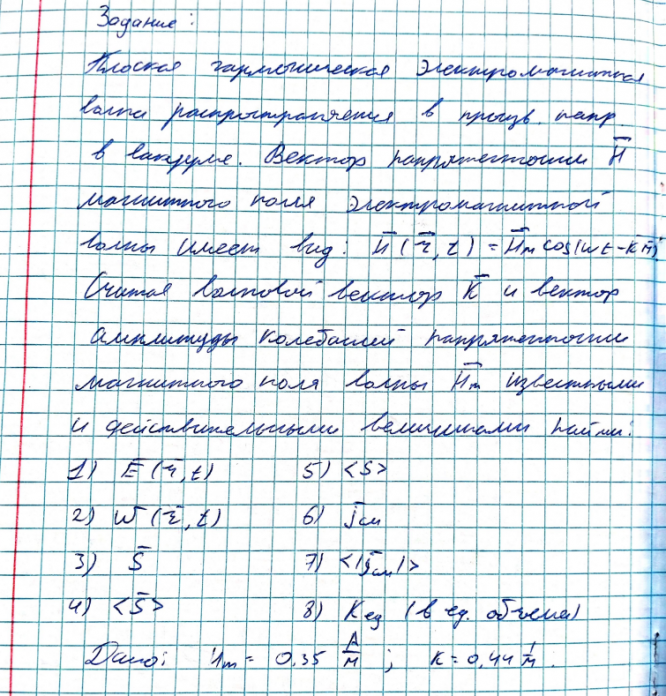 Задание:
Плоская гармоническая электромагнитная
волна распространяется в произв. напр.
в вакууме. Вектор напряженности H̅
магнитного поля электромагнитной
волны имеет вид: H̅ (r̅, t) = H̅m cos(ωt - k̅r̅).
Считая волновой вектор k̅ и вектор
амплитуды колебаний напряженности
магнитного поля волны H̅m известными
и действительными величинами найти:
1) E̅ (r̅, t) 5) <S>
2) w (r̅, t) 6) j̅см
3) S̅ 7) <|j̅см|>
4) <S̅> 8) Kед (в ед. объема)
Дано: Hm = 0,35 А/м ; k = 0,44 1/м.